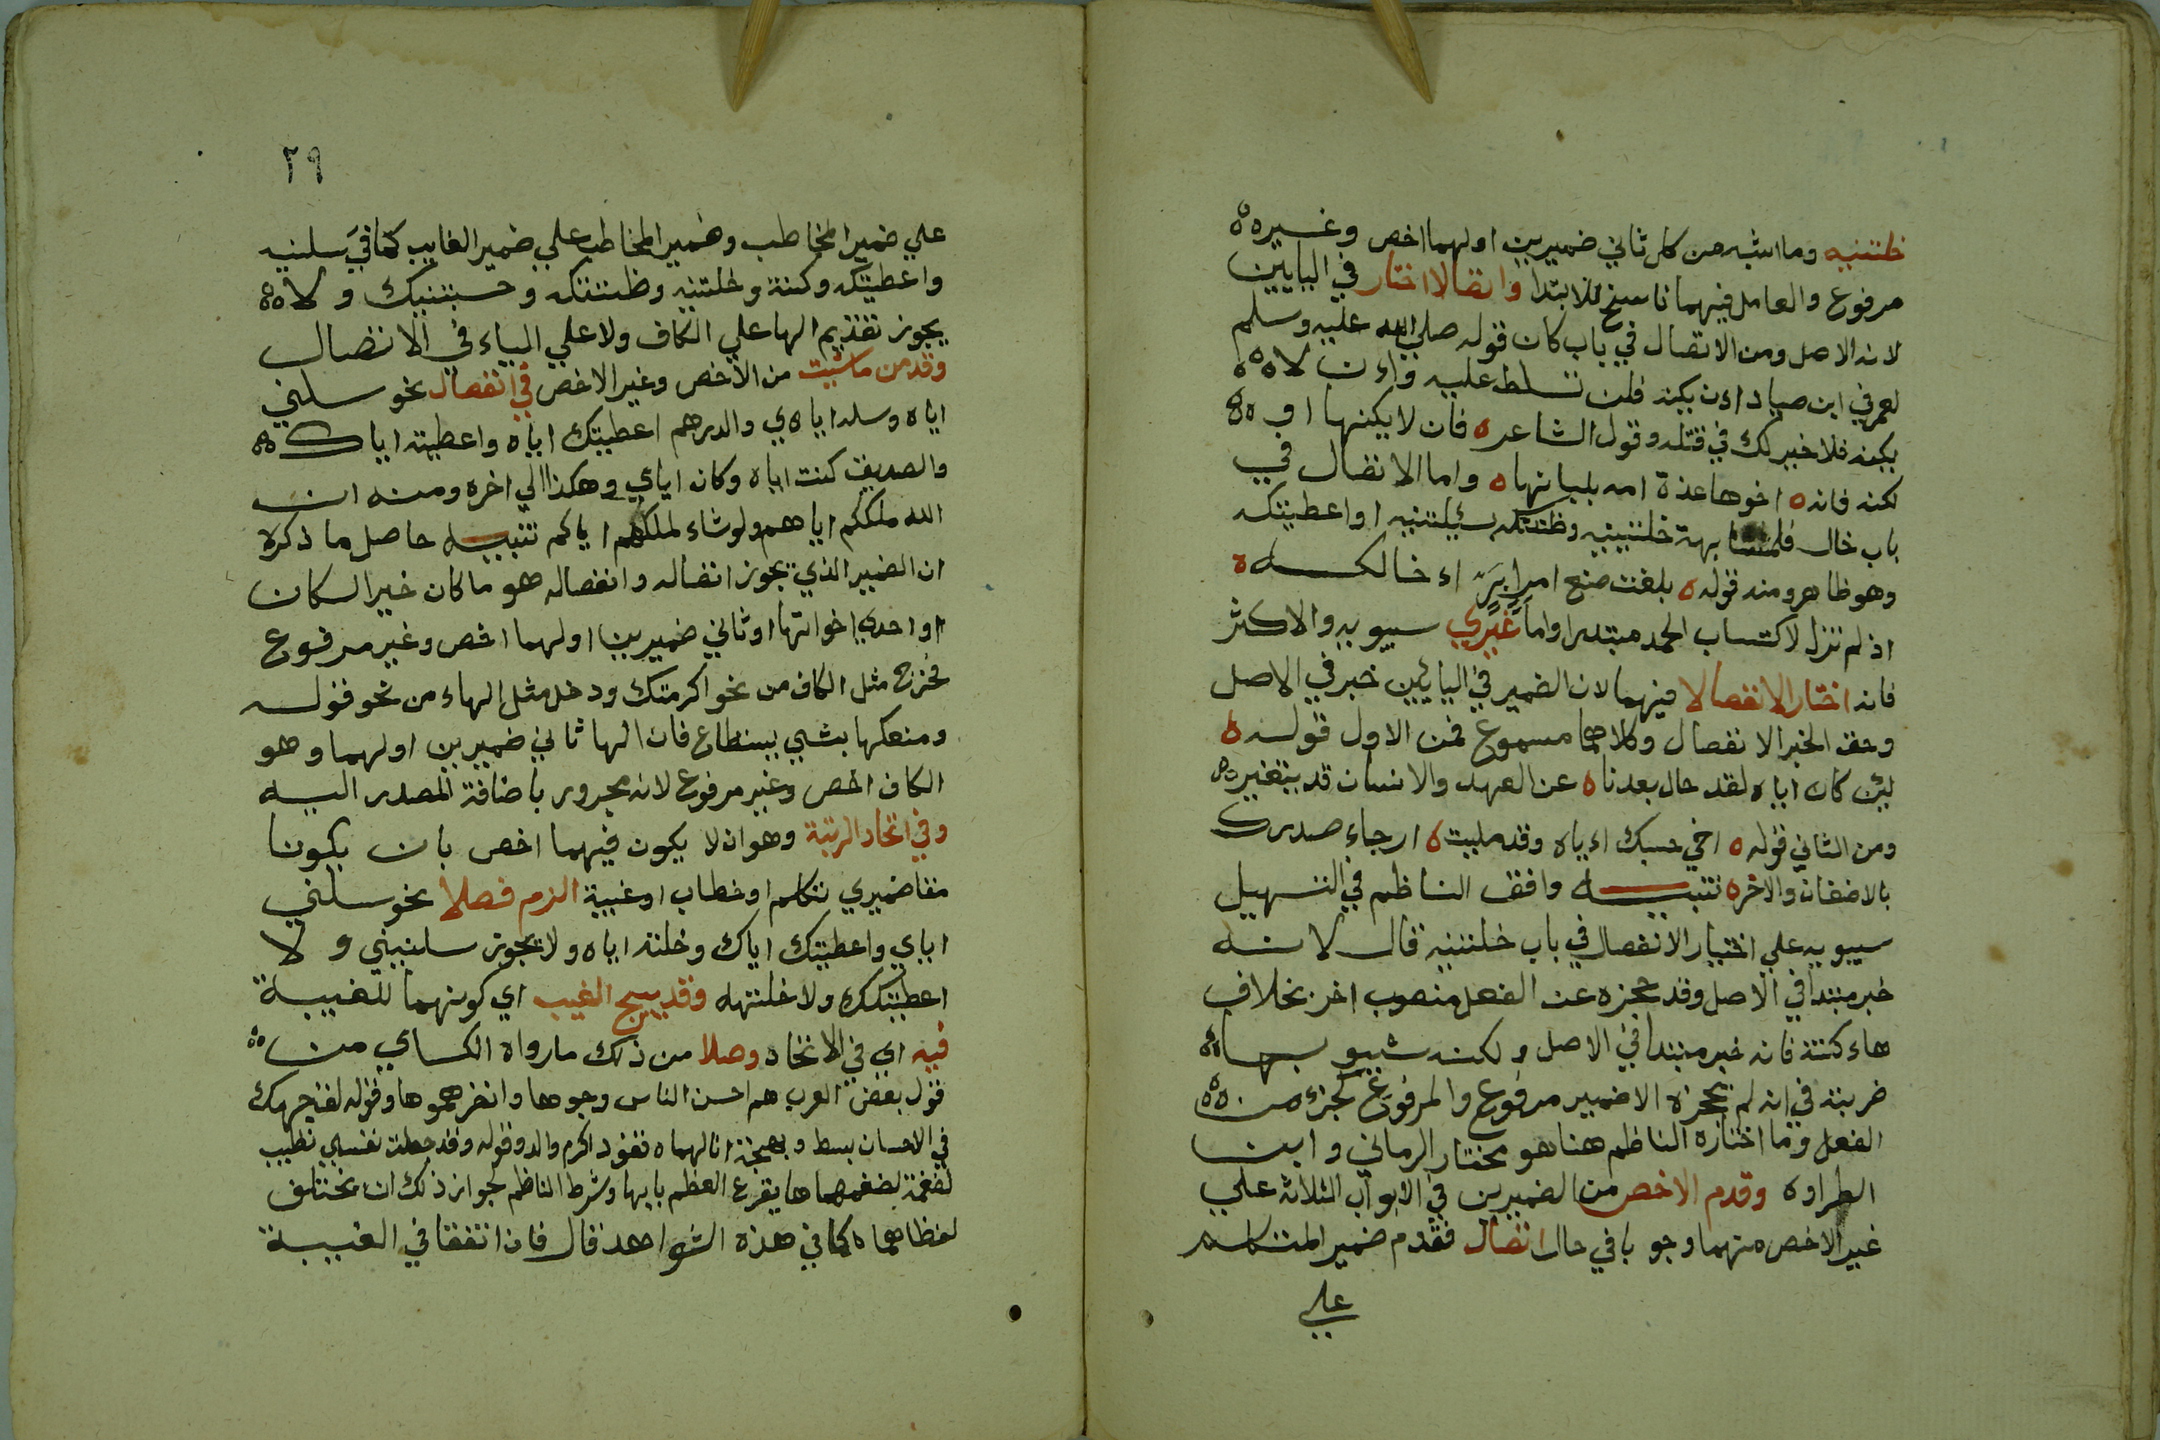 خلتنيه وما اشبه من كل ثاني ضميرين اولهما اخص وغيره
مرفوع والعامل فيهما ناسخ للابتدا واتصالا اختار في البابين
لانه الاصل ومن الاتصال في باب كان قوله صلي الله عليه وسلم
لعمر في ابن صياد ان يكنه فلن تسلط عليه وان لا
يكنه فلا خير لك في قتله وقول الشاعر ه فان لا يكنها او
تكنه فانه ه اخوها غذته امه بلبانها ه واما الاتصال في
باب خال فلمشابهة خلتنيه وظننتكه بسئلتنيه او اعطيتكه
وهو ظاهر ومنه قوله ه بلغت صنع امرا بر اخالكه ه
اذ لم تزل لاكتساب الحمد مبتدرا واما غيري سيبويه والاكثر
فانه اختار الانفصالا فيهما لان الضمير في البابين خبر في الاصل
وحق الخبر الانفصال وكلاهما مسموع فمن الاول قوله ه
لئن كان اياه لقد حال بعدنا ه عن العهد والانسان قد يتغير
ومن الثاني قوله ه اخي حسبتك اياه وقد مليت ه ارجاء صدرك
بالاضغان والاخره تنبيه وافق الناظم في التسهيل
سيبويه علي اختيار الانفصال في باب خلتنيه قال لانه
خبر مبتدا في الاصل وقد حجزه عن الفعل منصوب اخر بخلاف
هاء كنته فانه خبر مبتدا في الاصل ولكنه شبيه بهاء
ضربته في انه لم يحجزه الا ضمير مرفوع والمرفوع كجزء من
الفعل وما اختاره الناظم هنا هو مختار الرماني وابن
الطراوه وقدم الاخص من الضميرين في الابواب الثلاثه علي
غير الاخص منهما وجوبا في حال اتصال فقدم ضمير المتكلم
علي
٢٩
علي ضمير المخاطب وضمير المخاطب علي ضمير الغايب كما في سلنيه
واعطيتكه وكنته وخلتنيه وظننتكه وحسبتنيك ولا
يجوز تقديم الها علي الكاف ولا علي الياء في الاتصال
وقدمن ما شيت من الاخص وغير الاخص في انفصال نحو سلني
اياه وسله اياي والدرهم اعطيتك اياه واعطيته اياك
والصديق كنت اياه وكان اياي وهكذا الي اخره ومنه ان
الله ملككم اياهم ولو شاء لملكهم اياكم تنبيه حاصل ما ذكره
ان الضمير الذي يجوز اتصاله وانفصاله هو ما كان خبر الكان
او احدي اخواتها او ثاني ضميرين اولهما اخص وغير مرفوع
فخرج مثل الكاف من نحو اكرمتك ودخل مثل الهاء من نحو قوله
ومنعكها بشيي يستطاع فان الها ثاني ضميرين اولهما وهو
الكاف اخص وغير مرفوع لانه مجرور باضافة المصدر اليه
وفي اتحاد الرتبة وهو ان لا يكون فيهما اخص بان يكونا
معا ضميري تكلم او خطاب او غيبة الزم فصلا نحو سلني
اياي واعطيتك اياك وخلته اياه ولا يجوز سلنيني ولا
اعطيتكك ولا خلتهه وقد يبيح الغيب اي كونهما للغيبة
فيه اي في الاتحاد وصلا من ذلك ما رواه الكساي من
قول بعض العرب هم احسن الناس وجوها وانضرهموها وقوله لوجهك
في الاحسان بسط وبهجة انالهماه قفو اكرم والد وقوله وقد جعلت نفسي تطيب
لضغمة لضغمهماها يقرع العظم نابها وشرط الناظم لجواز ذلك ان يختلف
لفظاهما كما في هذه الشواهد قال فان اتفقا في الغيبة